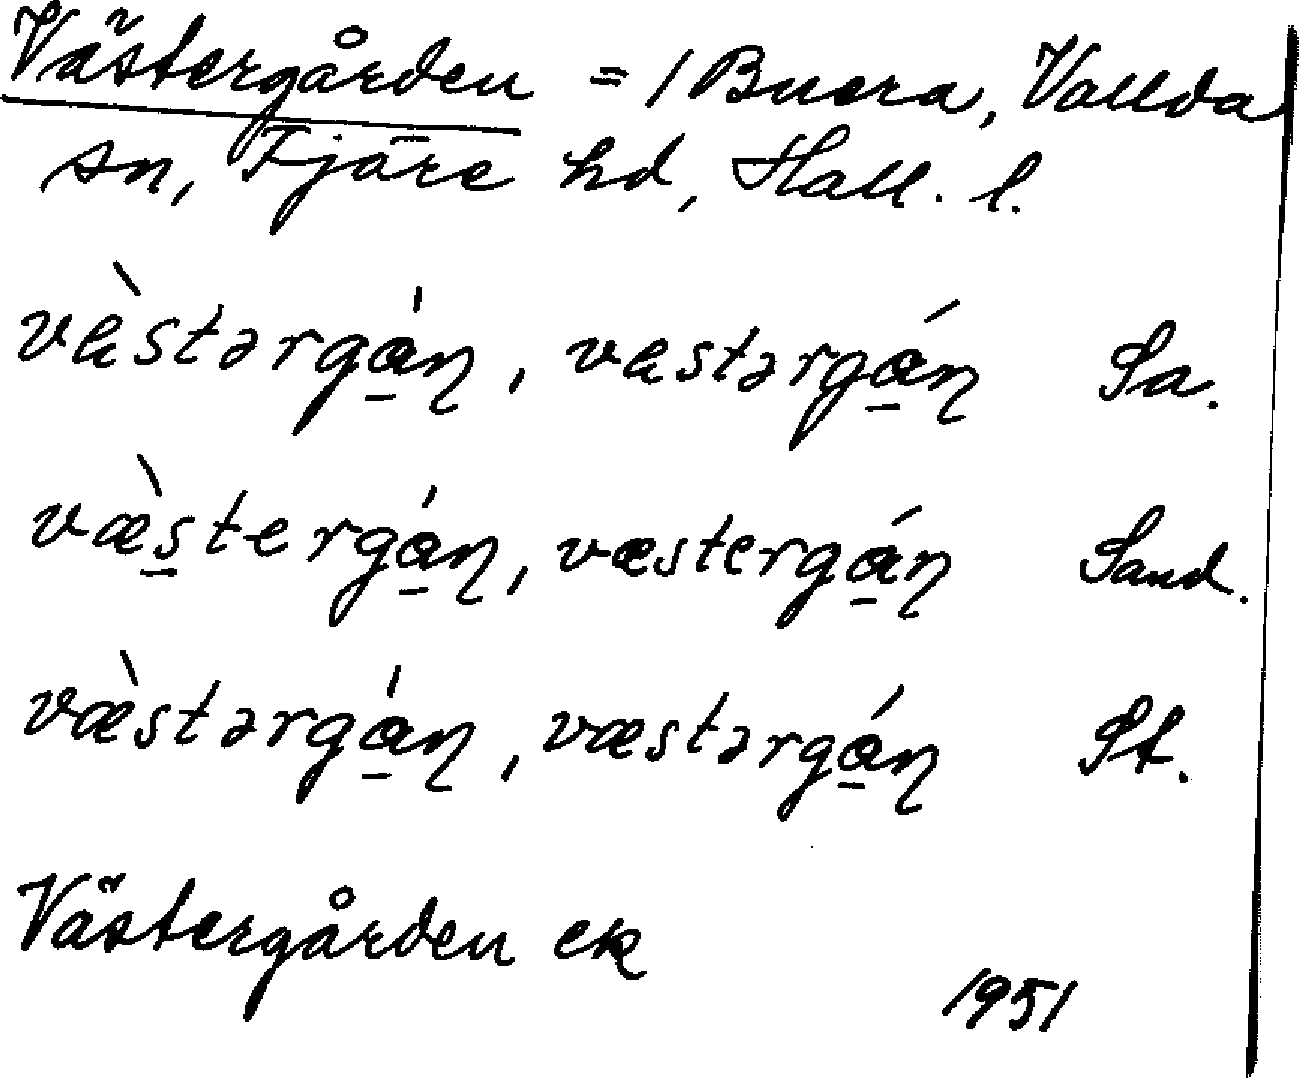 Västergården = 1 Buera, Vallda
sn, Fjäre hd, Hall. l.
vὰstərgά̲ɳ, vαstərgά̲ɳ Sa.
væ̀s̲tergά̲ɳ, væstergά̲ɳ Sand.
væ̀stərgά̲ɳ, væstərgά̲ɳ St.
Västergården ek
1951